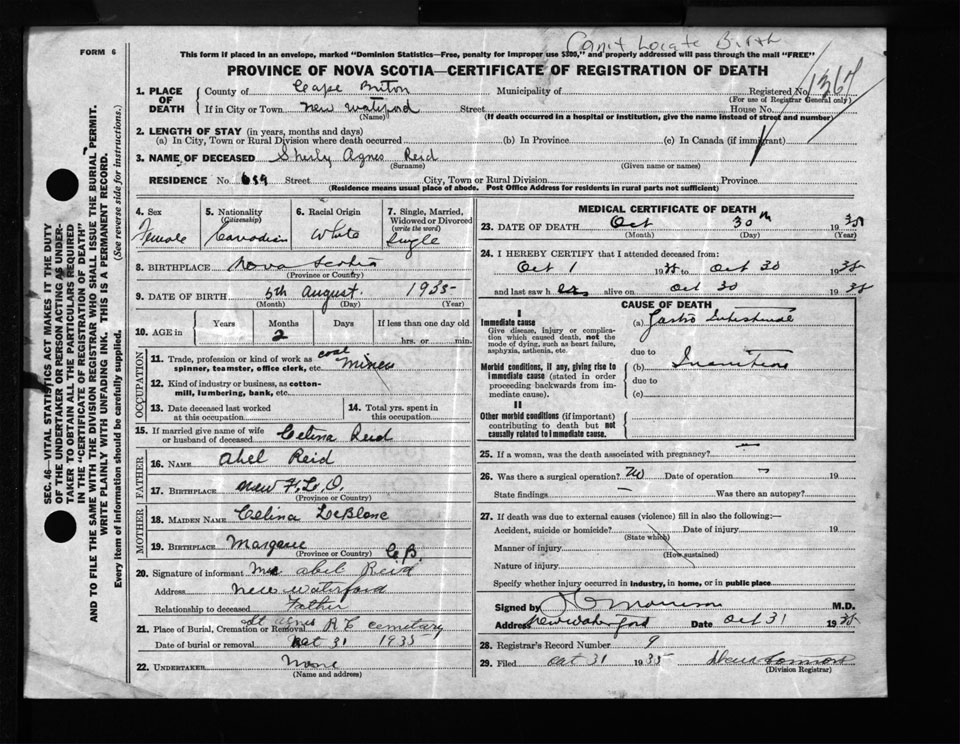 Can't Locate Birth
FORM 6
This form if placed in an envelope, marked "Dominion Statistics—Free, penalty for improper use $300," and properly addressed will pass through the mail "FREE"
PROVINCE OF NOVA SCOTIA—CERTIFICATE OF REGISTRATION OF DEATH
1367
1. PLACE OF DEATH { County of Cape Briton Municipality of Registered No.
(For use of Registrar General only)
If in City or Town New Waterford Street House No.
(Name) (If death occurred in a hospital or institution, give the name instead of street and number)
2. LENGTH OF STAY (in years, months and days)
(a) In City, Town or Rural Division where death occurred (b) In Province (c) In Canada (if immigrant)
3. NAME OF DECEASED Shirly Agnes Reid
(Surname) (Given name or names)
RESIDENCE No. 659 Street City, Town or Rural Division Province
(Residence means usual place of abode. Post Office Address for residents in rural parts not sufficient)
4. Sex
Female
5. Nationality
(Citizenship)
Canadian
6. Racial Origin
White
7. Single, Married, Widowed or Divorced
(write the word)
Single
8. BIRTHPLACE Nova Scotia
(Province or Country)
9. DATE OF BIRTH 5th August. 1935
(Month) (Day) (Year)
10. AGE in
Years Months Days If less than one day old
2 hrs. or min.
OCCUPATION
11. Trade, profession or kind of work as spinner, teamster, office clerk, etc. coal miner
12. Kind of industry or business, as cotton-mill, lumbering, bank, etc.
13. Date deceased last worked at this occupation
14. Total yrs. spent in this occupation
15. If married give name of wife or husband of deceased Celina Reid
FATHER
16. NAME Abel Reid
17. BIRTHPLACE New F.L.D.
(Province or Country)
MOTHER
18. MAIDEN NAME Celina LeBlanc
19. BIRTHPLACE Margaree C.B.
(Province or Country)
20. Signature of informant Mr abel Reid
Address New Waterford
Relationship to deceased Father
21. Place of Burial, Cremation or Removal St Agnes R C cemetary
Date of burial or removal Oct 31 1935
22. UNDERTAKER None
(Name and address)
MEDICAL CERTIFICATE OF DEATH
23. DATE OF DEATH Oct 30th 1935
(Month) (Day) (Year)
24. I HEREBY CERTIFY that I attended deceased from:
Oct 1 1935 to Oct 30 1935
and last saw her alive on Oct 30 1935
CAUSE OF DEATH
I
Immediate cause
Give disease, injury or complication which caused death, not the mode of dying, such as heart failure, asphyxia, asthenia, etc.
(a) Gastro Intestinal
due to
Morbid conditions, if any, giving rise to immediate cause (stated in order proceeding backwards from immediate cause).
(b) Inanition
due to
(c)
II
Other morbid conditions (if important) contributing to death but not causally related to immediate cause.
25. If a woman, was the death associated with pregnancy?
26. Was there a surgical operation? No Date of operation 19
State findings Was there an autopsy?
27. If death was due to external causes (violence) fill in also the following:—
Accident, suicide or homicide? Date of injury 19
(State which)
Manner of injury
(How sustained)
Nature of injury
Specify whether injury occurred in industry, in home, or in public place
Signed by Morrison M.D.
Address New Waterford Date Oct 31 1935
28. Registrar's Record Number 9
29. Filed Oct 31 1935
(Division Registrar)
SEC. 46—VITAL STATISTICS ACT MAKES IT THE DUTY
OF THE UNDERTAKER OR PERSON ACTING AS UNDER-
TAKER TO OBTAIN ALL THE PARTICULARS REQUIRED
IN THE "CERTIFICATE OF REGISTRATION OF DEATH"
AND TO FILE THE SAME WITH THE DIVISION REGISTRAR WHO SHALL ISSUE THE BURIAL PERMIT.
WRITE PLAINLY WITH UNFADING INK. THIS IS A PERMANENT RECORD.
Every item of information should be carefully supplied. (See reverse side for instructions.)